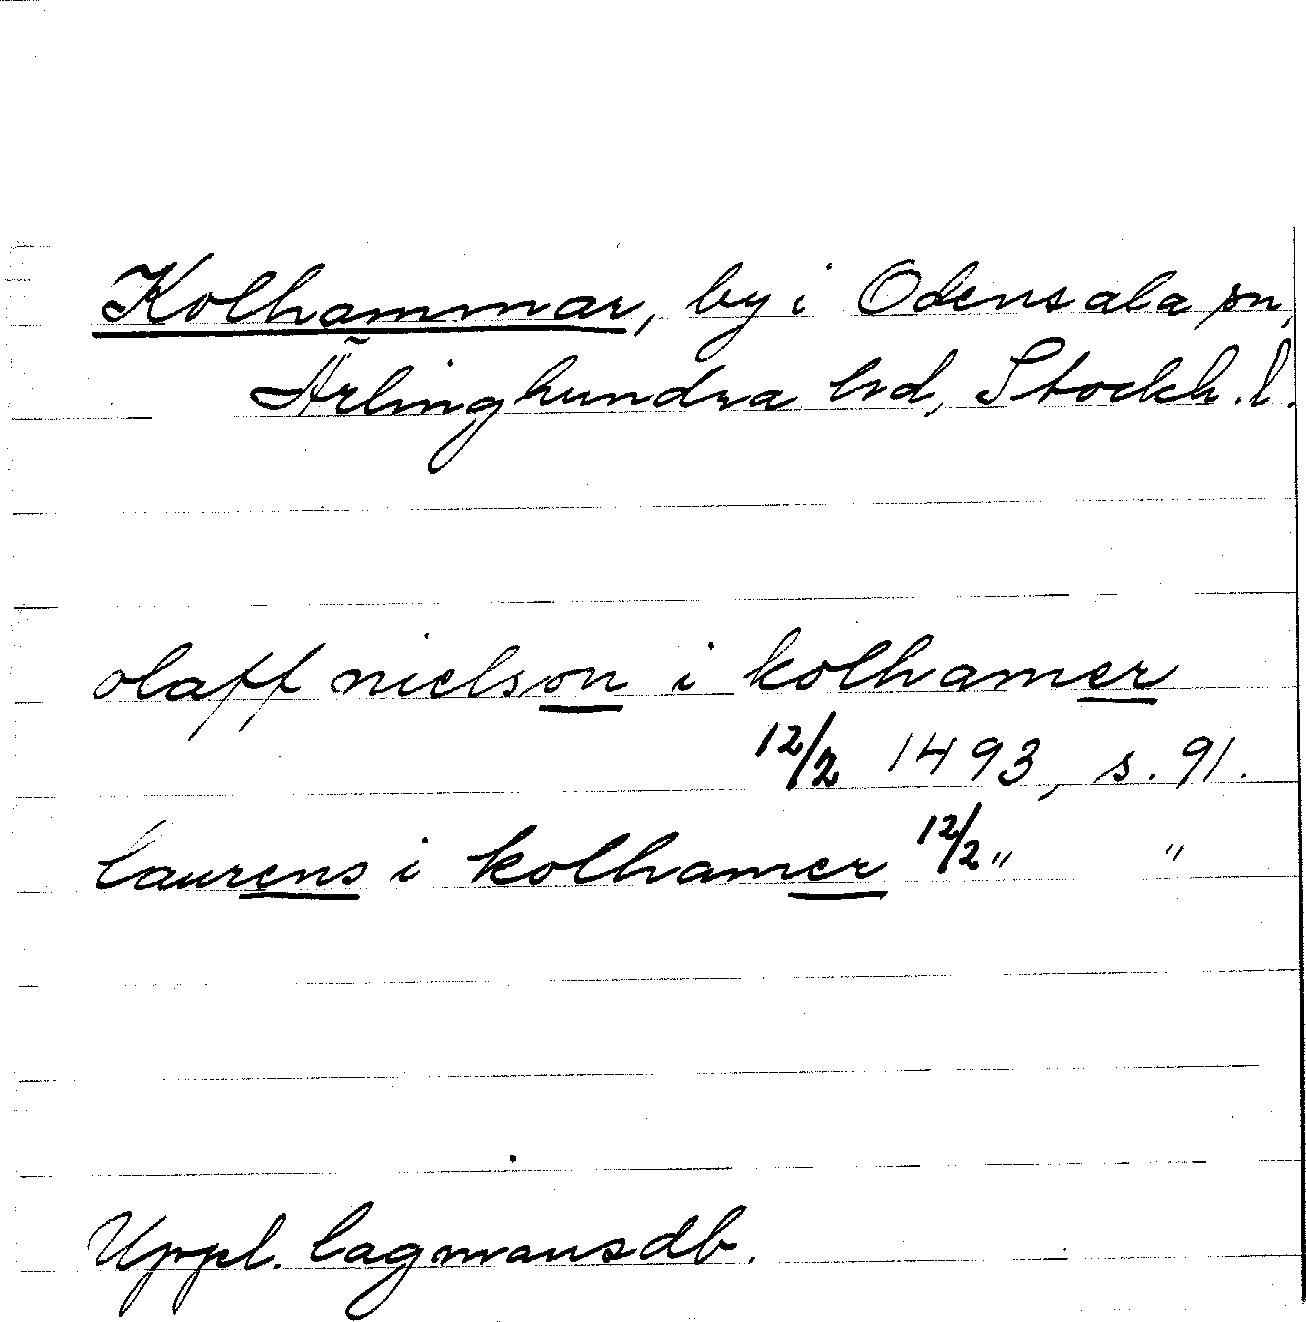 Kolhammar, by i Odensala sn,
Ärlinghundra hd, Stockh. l.
olaff nielson i kolhamer
12/2 1493, s. 91.
laurens i kolhamer 12/2 " "
Uppl. lagmansdb.